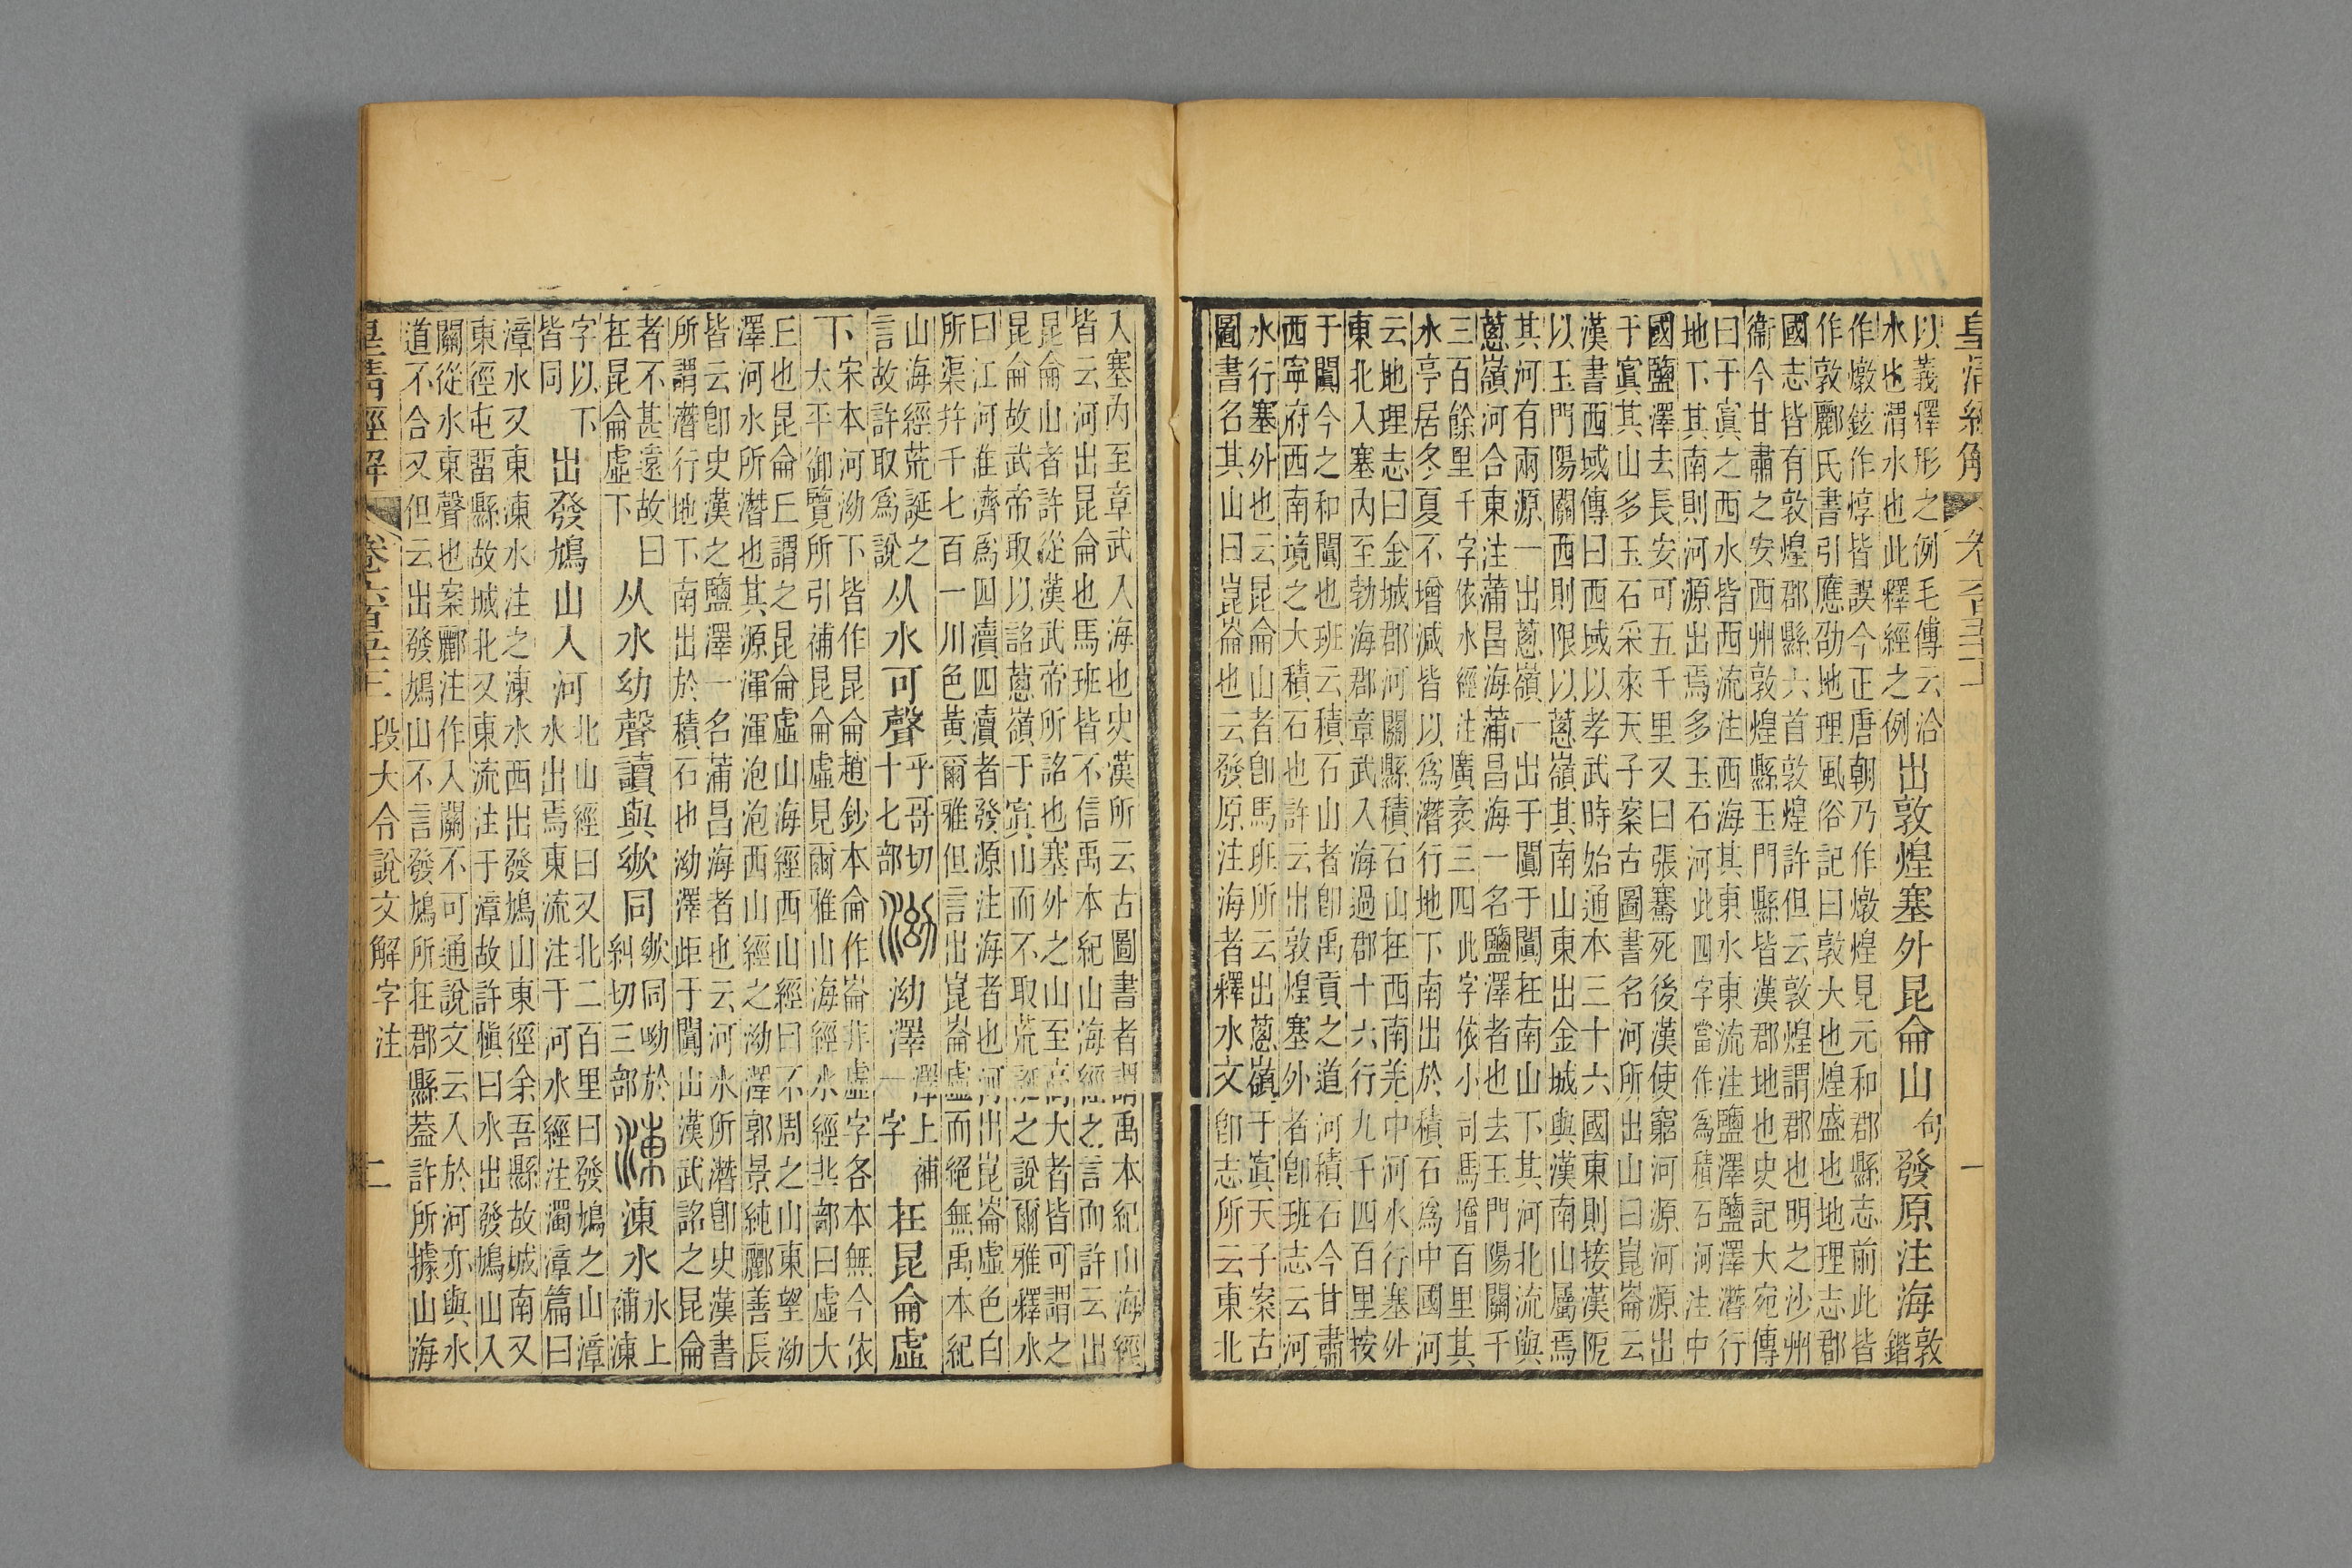 皇清經解 卷六百五十三 一
以義釋形之例毛傳云洽
水也渭水也此釋經之例
出敦煌塞外昆侖山
句
發原注海
敦
鍇
作燉鉉作焞皆誤今正唐朝乃作燉煌見元和郡縣志前此皆
作敦酈氏書引應劭地理風俗記曰敦大也煌盛也地理志郡
國志皆有敦煌郡縣六首敦煌許但云敦煌謂郡也明之沙州
衞今甘肅之安西州敦煌縣玉門縣皆漢郡地也史記大宛傳
曰于窴之西水皆西流注西海其東水東流注鹽澤鹽澤潛行
地下其南則河源出焉多玉石河
此四字當作爲積石河
注中
國鹽澤去長安可五千里又曰張騫死後漢使窮河源河源出
于窴其山多玉石采來天子案古圖書名河所出山曰崑崙云
漢書西域傳曰西域以孝武時始通本三十六國東則接漢阸
以玉門陽關西則限以蔥嶺其南山東出金城與漢南山屬焉
其河有兩源一出蔥嶺一出于闐于闐在南山下其河北流與
蔥嶺河合東注蒲昌海蒲昌海一名鹽澤者也去玉門陽關千
三百餘里
千字依水經注
廣袤三四
此字依小司馬增
百里其
水亭居冬夏不增減皆以爲潛行地下南出於積石爲中國河
云地理志曰金城郡河關縣積石山在西南羌中河水行塞外
東北入塞内至勃海郡章武入海過郡十六行九千四百里按
于闐今之和闐也班云積石山者卽禹貢之道河積石今甘肅
西寧府西南境之大積石也許云出敦煌塞外者卽班志云河
水行塞外也云昆侖山者卽馬班所云出蔥嶺于窴天子案古
圖書名其山曰崑崙也云發原注海者釋水文卽志所云東北
入塞内至章武入海也史漢所云古圖書者謂禹本紀山海經
皆云河出昆侖也馬班皆不信禹本紀山海經之言而許云出
昆侖山者許從漢武帝所詺也塞外之山至高大者皆可謂之
昆侖故武帝取以詺蔥嶺于窴山而不取荒誕之說爾雅釋水
曰江河淮濟爲四瀆四瀆者發源注海者也河出崑崙虛色白
所渠幷千七百一川色黃爾雅但言出崑崙虛而絕無禹本紀
山海經荒誕之
言故許取爲說
从水可聲
乎哥切
十七部
泑
泑澤
澤上補
一字
在昆侖虛
下
宋本河泑下皆作昆侖趙鈔本侖作崙非虛字各本無今依
太平御覽所引補昆侖虛見爾雅山海經水經丠部曰虛大
丘也昆侖丘謂之昆侖虛山海經西山經曰不周之山東望泑
澤河水所潛也其源渾渾泡泡西山經之泑澤郭景純酈善長
皆云卽史漢之鹽澤一名蒲昌海者也云河水所潛卽史漢書
所謂潛行地下南出於積石也泑澤歫于闐山漢武詺之昆侖
者不甚遠故曰
在昆侖虛下
从水幼聲讀與㕭同
㕭同呦於
糾切三部
涷
涷水
水上
補涷
字以下
皆同
出發鳩山入河
北山經曰又北二百里曰發鳩之山漳
水出焉東流注于河水經注濁漳篇曰
漳水又東涷水注之涷水西出發鳩山東徑余吾縣故城南又
東徑屯畱縣故城北又東流注于漳故許愼曰水出發鳩山入
關從水東聲也案酈注作入關不可通說文云入於河亦與水
道不合又但云出發鳩山不言發鳩所在郡縣葢許所據山海
皇清經解 卷六百五十三 段大令說文解字注 二